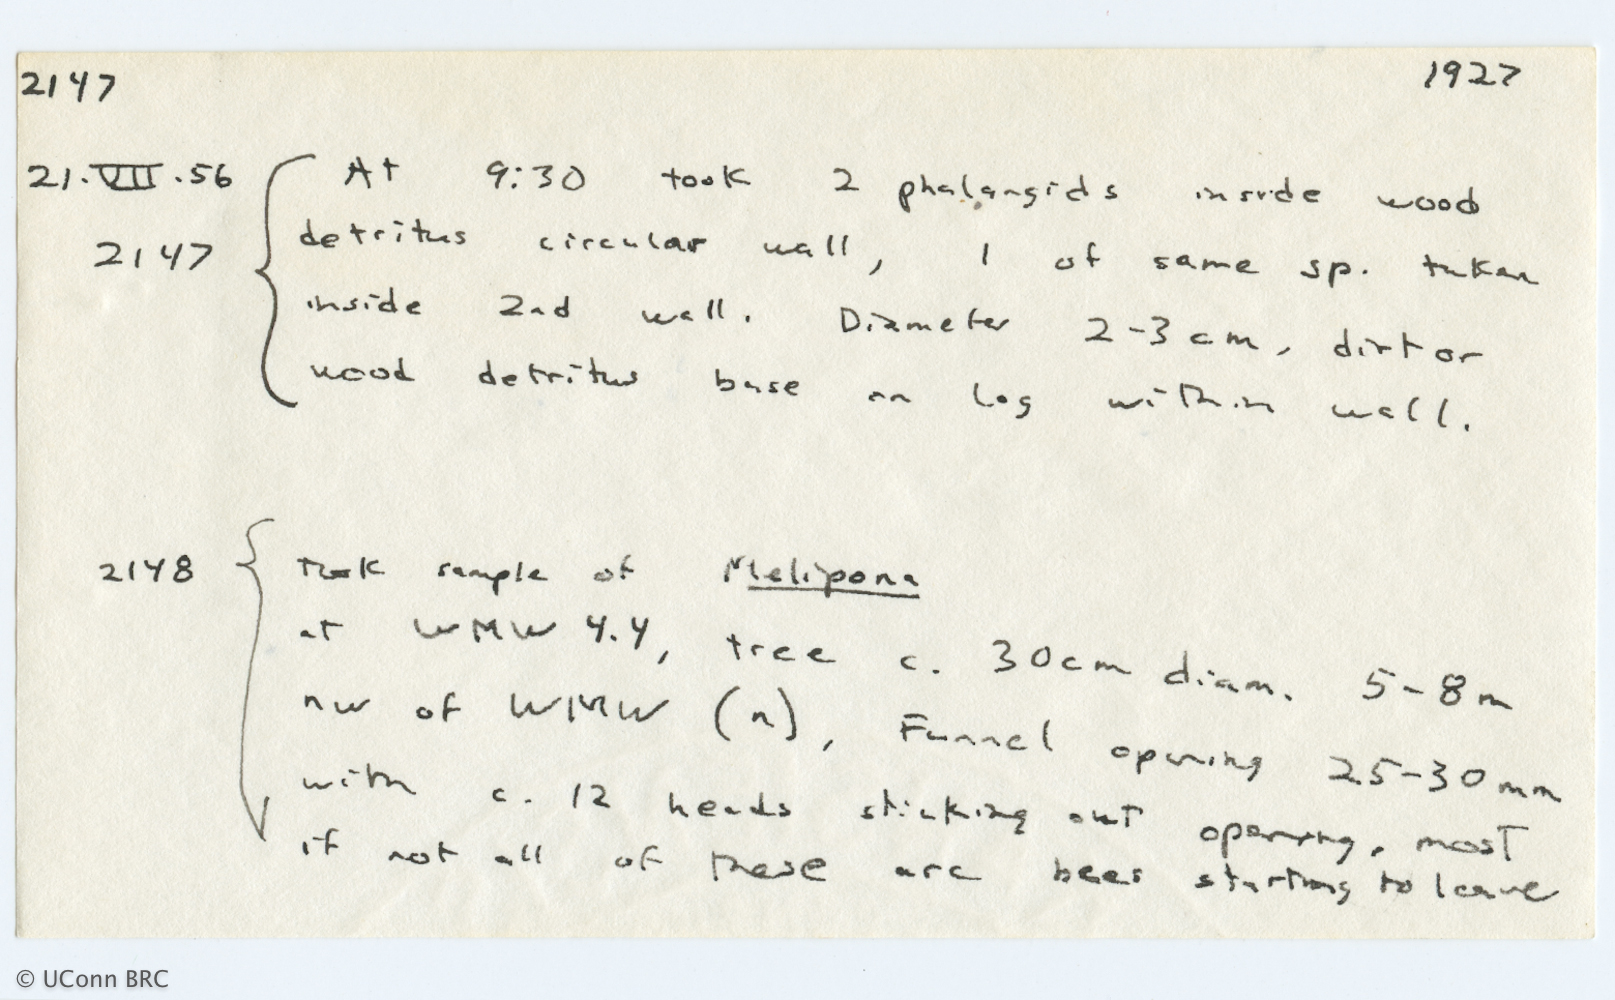 2147 1927
21.VII.56 At 9:30 took 2 phalangids inside wood
2147 detritus circular wall, 1 of same sp. taken
inside 2nd wall. Diameter 2-3 cm, dirt or
wood detritus base on log within wall.
2148 Took sample of Melipona
at WMW 4.4, tree c. 30cm diam. 5-8m
nw of WMW (n), Funnel opening 25-30mm
with c. 12 heads sticking out opening, most
if not all of these are bees starting to leave
© UConn BRC